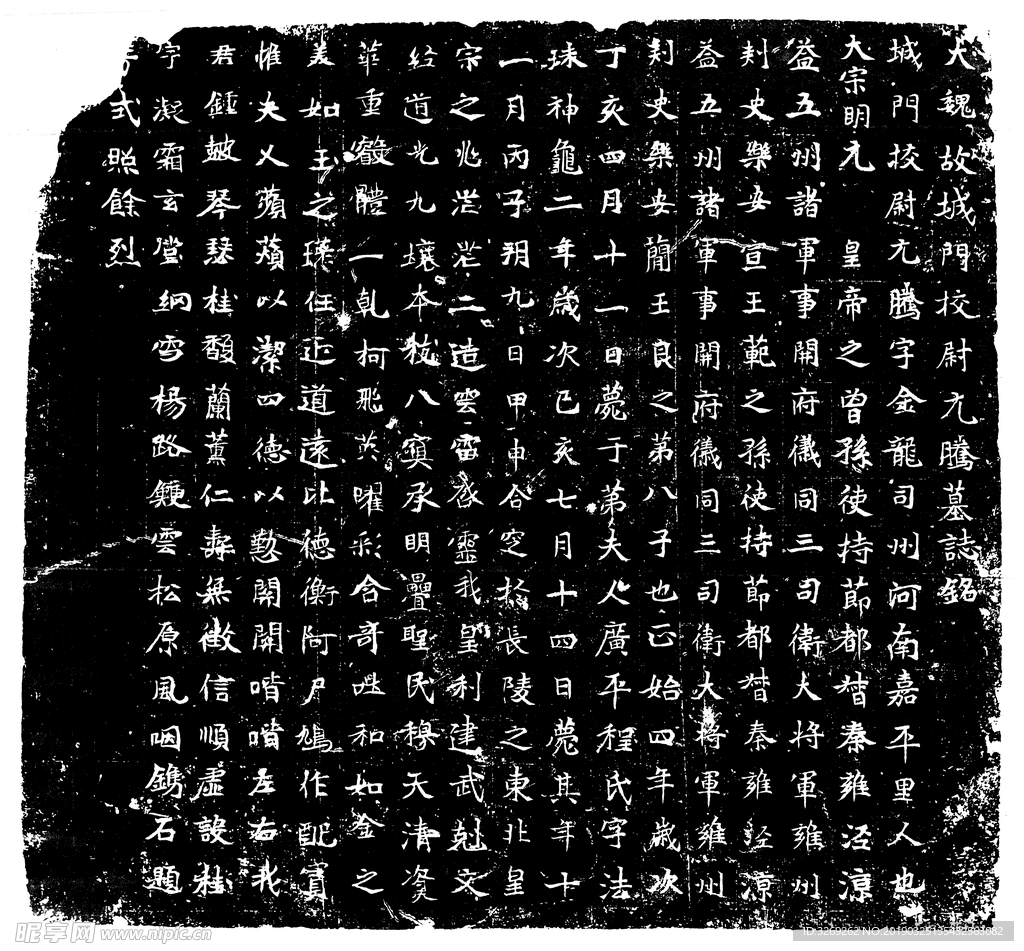 大魏故城門校尉元騰墓誌銘
城門挍尉元騰字金龍司州河南嘉平里人也
大宗明元皇帝之曾孫使持節都督秦雍涇涼
益五州諸軍事開府儀同三司衛大將軍雍州
刺史樂安宣王範之孫使持節都督秦雍涇涼
益五州諸軍事開府儀同三司衛大將軍雍州
刺史樂安簡王良之第八子也正始四年歲次
丁亥四月十一日薨于第夫人廣平程氏字法
珠神龜二年歲次己亥七月十四日薨其年十
一月丙子朔九日甲申合窆於長陵之東北皇
宗之兆茫茫二造雲雷感靈我皇利建武剋文
經道光九壤本秡八冥承明疊聖民穆天清資
華重馥體一乹柯飛英曜彩含奇挺和如金之
美如玉之瑛任近道遠比德衡阿尸鳩作配寔
惟夫人蘋蘩以潔四德以懃關關喈喈左右我
君鍾皷琴瑟桂馥蘭薰仁壽無徵信順虛設桂
宇凝霜玄堂網雪楊路鍾雲松原風咽鐫石題
芳式照餘烈
昵享网 www.nipic.cn